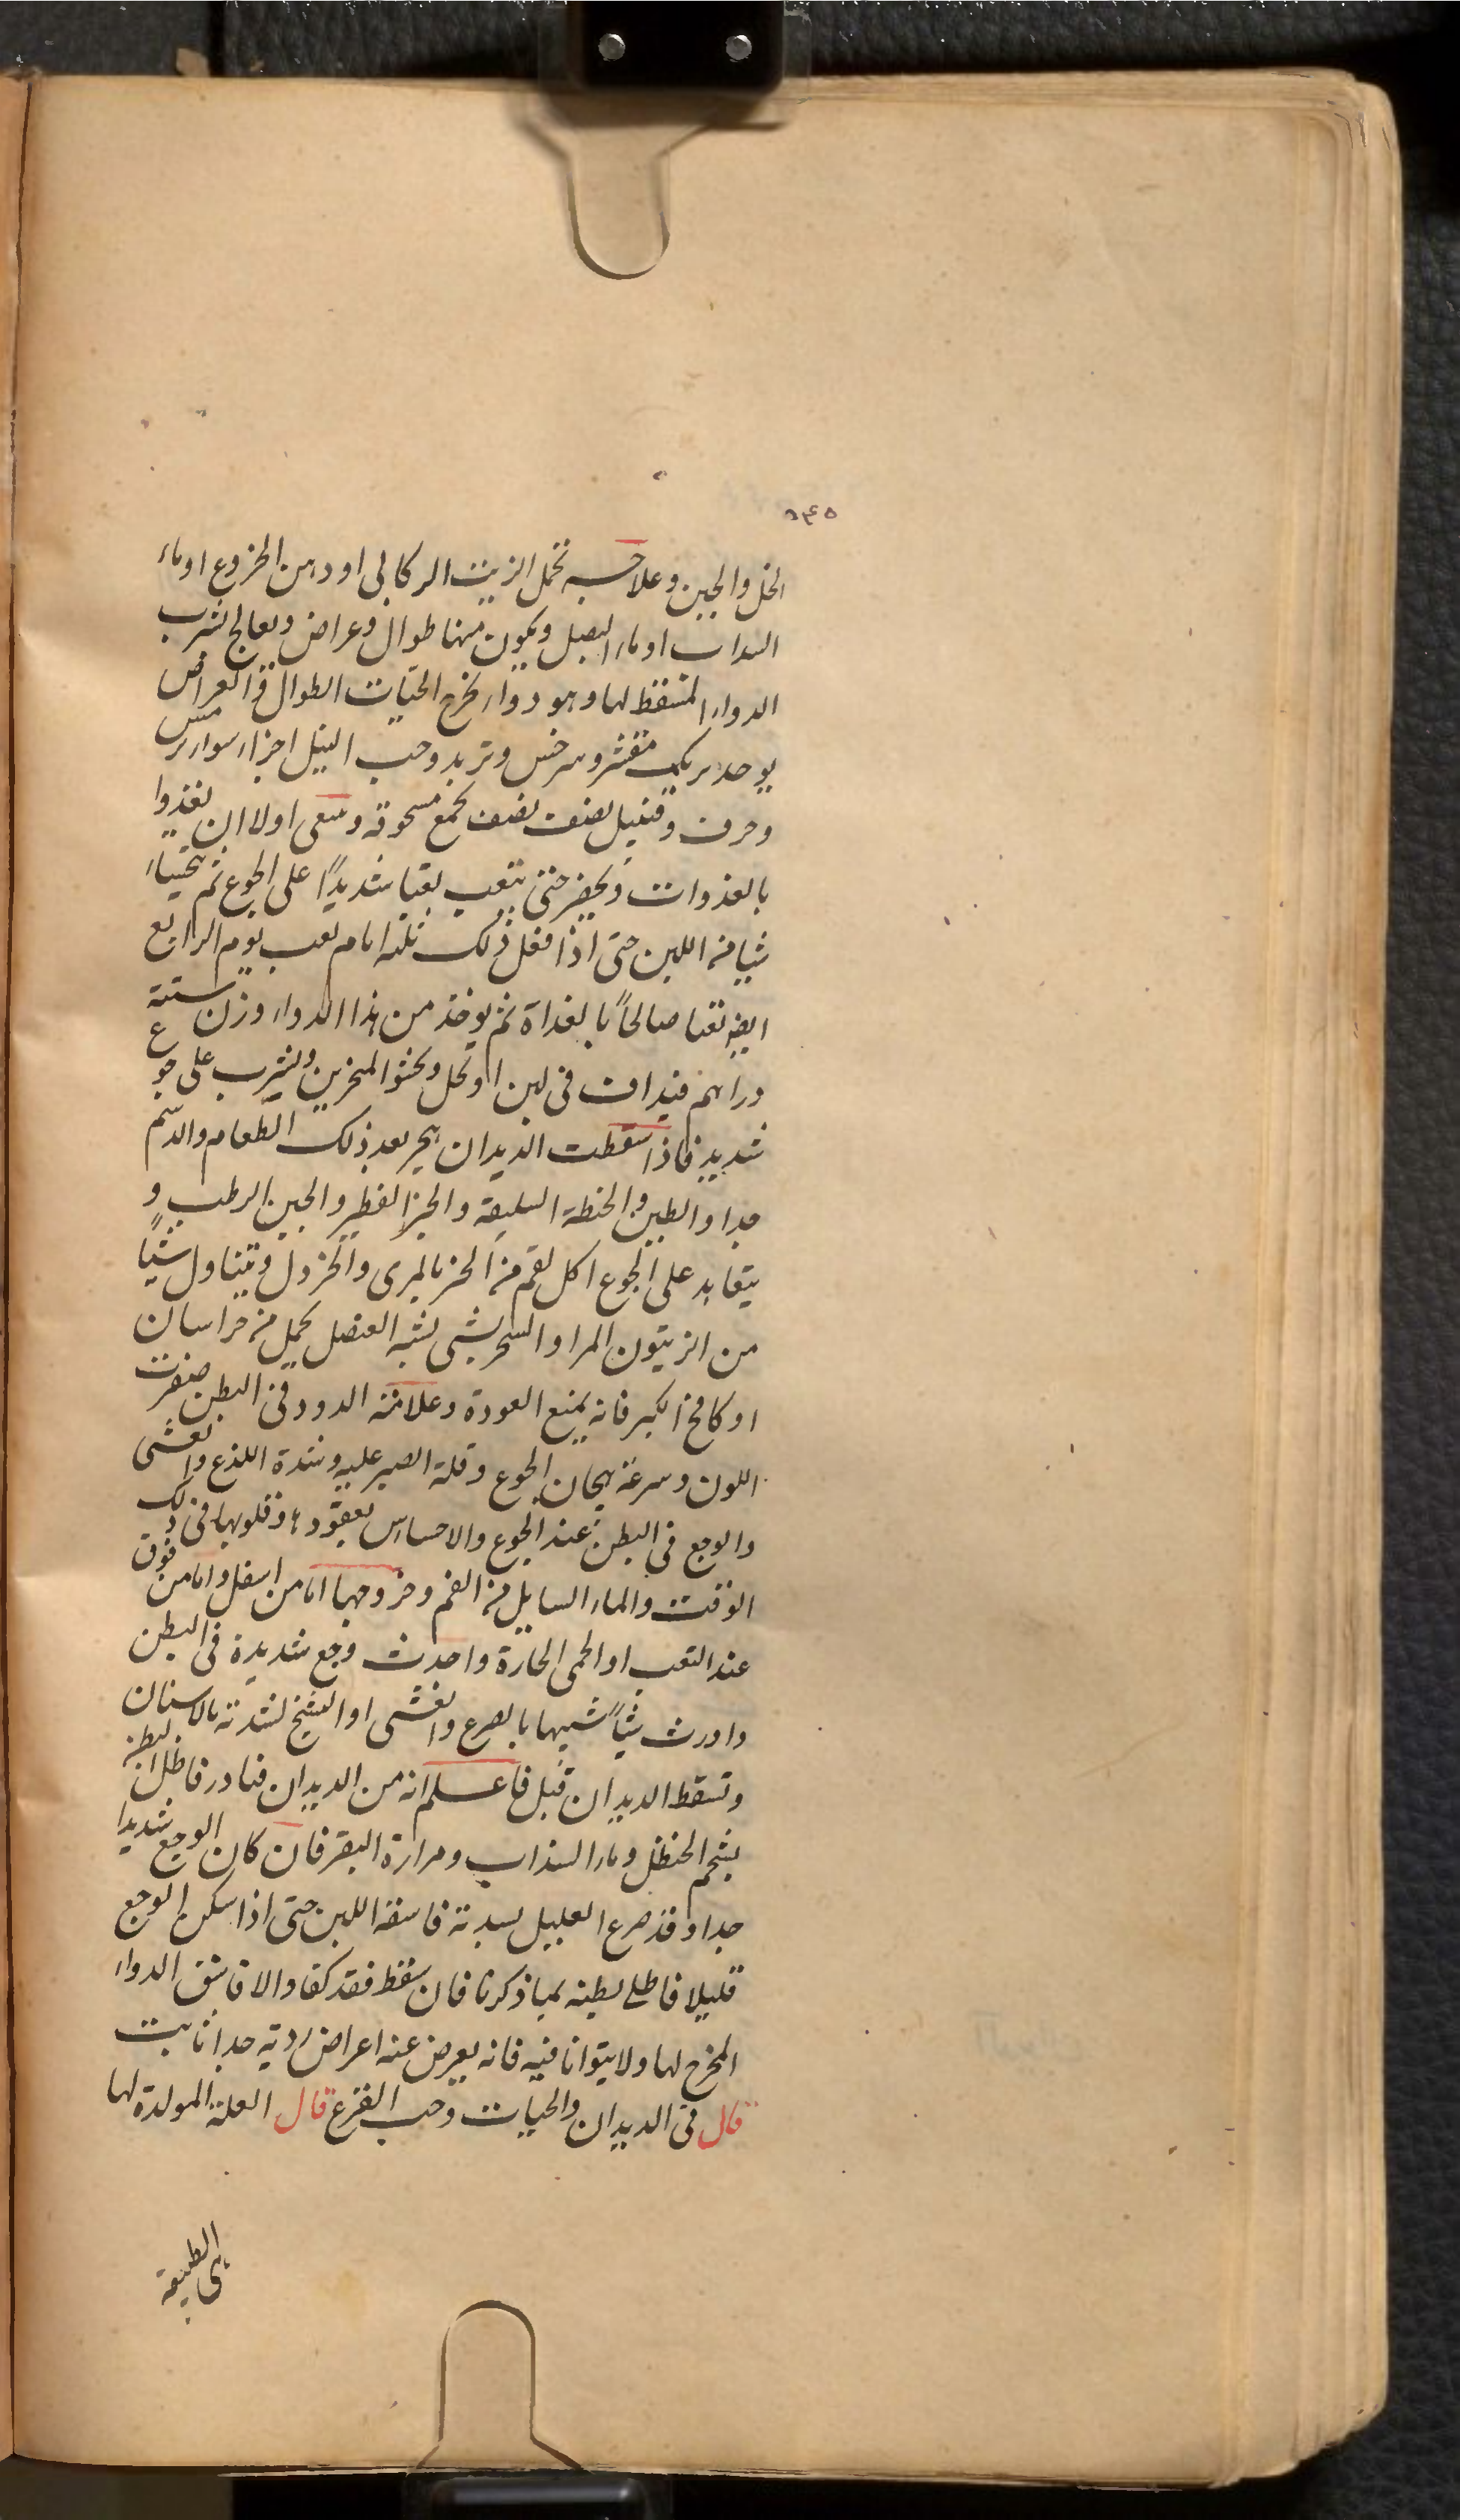 ٥٤٥
الخل والجبن وعلاجه تحمل الزيت الركابى او دهن الخروع او ماء
السداب او ماء البصل ويكون منها طوال وعراض وتعالج بشرب
الدواء المسقط لها وهو دواء يخرج الحيات الطوال والعراض
يوخذ برنك مقشر وسرخس وتربد وحب النيل اجزاء سواء ترمس
وحرف وقنبيل نصف نصف يجمع مسحوقه ويسقى اولا ان يغذوا
بالغذوات ويحضر حتى يتعب تعبا شديدًا على الجوع ثم يتحسا
شيا من اللبن حتى اذا فعل ذلك ثلثه ايام تعب يوم الرابع
ايض تعبا صالحاً بالغداة ثم يوخذ من هذا الدواء وزن ستة
دراهم فيداف فى لبن او خل ويحشوا المنخرين ويشرب على جوع
شديد فاذا سقطت الديدان هجر بعد ذلك الطعام والدسم
جدا والطين والحنطة السليقة والخبز الفطير والجبن الرطب و
يتعاهد على الجوع اكل لقم من الخبز بالمرى والخردل ويتناول شيًا
من الزيتون المر او السحر بشى يشبه العنصل يحمل من خراسان
او كامخ الكبر فانه يمنع العودة وعلامة الدود فى البطن صفرت
اللون وسرعة هيجان الجوع وقلة الصبر عليه وشدة اللذع والغشى
والوجع فى البطن عند الجوع والاحساس بعقودها وقلوبها فى ذلك
الوقت والماء السايل من الفم وخروجها اما من اسفل واما من فوق
عند التعب او الحمى الحارة واحدث وجع شديدة فى البطن
واورث شيًا شبيها بالصرع والغشى او التشنج لشدته بالاسنان
وتسقط الديدان قبل فاعلم انه من الديدان فبادر فاطل البطن
بشحم الحنظل وماء السذاب ومرارة البقر فان كان الوجع شديدا
جدا وقد صرع العليل لسدته فاسقه اللبن حتى اذا سكن الوجع
قليلا فاطلى بطنه بما ذكرنا فان سقط فقد كفا والا فاسق الدواء
المخرج لها ولا يتوانا فيه فانه يعرض عنه اعراض ردية جدا ثابت
قال فى الديدان والحيات وحب القرع قال العلة المولدة لها
هى الطبيعة